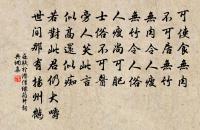 可使食無肉
不可居無竹
無肉令人瘦
無竹令人俗
人瘦尚可肥
士俗不可醫
旁人笑此言
似高還似痴
若對此君仍大嚼
世間那有揚州鶴
於潛僧綠筠軒